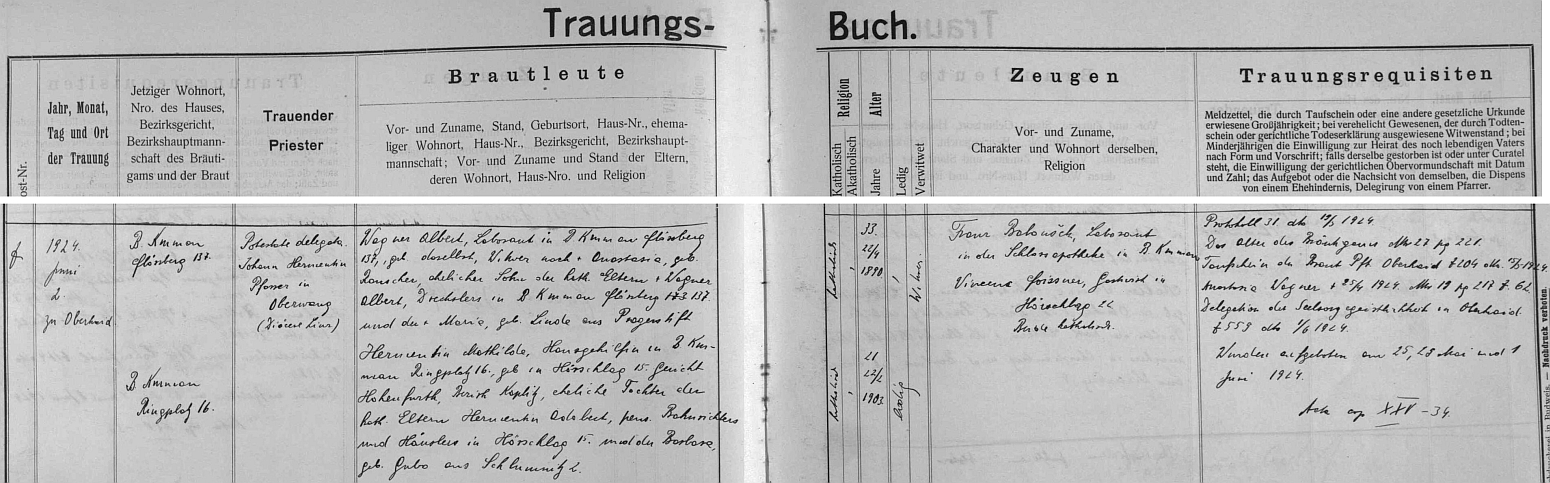 Trauungs-
Buch.
Post-Nr.
Jahr, Monat,
Tag und Ort
der Trauung
Jetziger Wohnort,
Nro. des Hauses,
Bezirksgericht,
Bezirkshauptmann-
schaft des Bräuti-
gams und der Braut
Trauender
Priester
Brautleute
Vor- und Zuname, Stand, Geburtsort, Haus-Nr., ehema-
liger Wohnort, Haus-Nr., Bezirksgericht, Bezirkshaupt-
mannschaft; Vor- und Zuname und Stand der Eltern,
deren Wohnort, Haus-Nro. und Religion
Religion
Katholisch
Akatholisch
Alter
Jahre
Ledig
Verwitwet
Zeugen
Vor- und Zuname,
Charakter und Wohnort derselben,
Religion
Trauungsrequisiten
Meldzettel, die durch Taufschein oder eine andere gesetzliche Urkunde
erwiesene Großjährigkeit; bei verehelicht Gewesenen, der durch Todten-
schein oder gerichtliche Todeserklärung ausgewiesene Witwenstand; bei
Minderjährigen die Einwilligung zur Heirat des noch lebenden Vaters
nach Form und Vorschrift; falls derselbe gestorben ist oder unter Curatel
steht, die Einwilligung der gerichtlichen Obervormundschaft mit Datum
und Zahl; das Aufgebot oder die Nachsicht von demselben, die Dispens
von einem Ehehindernis, Delegirung von einem Pfarrer.
1924.
Juni
2.
zu Oberhaid
B. Krumau
Flössberg 137.
B. Krumau
Ringplatz 16.
Potestate delegata
Johann Hermentin
Pfarrer in
Oberwang
(Diöcese Linz)
Wagner Albert, Laborant in B. Krumau Flössberg
137, geb. daselbst, Witwer nach + Anastasia, geb.
Rauscher, ehelicher Sohn der kath. Eltern + Wagner
Albert, Drechslers in B. Krumau Flössberg 137.
und der + Maria, geb. Linda aus Pragerstift
Hermentin Mathilde, Hausgehilfin in B. Kru-
mau Ringplatz 16., geb. in Hörschlag 15. Gericht
Hohenfurth, Bezirk Kaplitz, eheliche Tochter der
kath. Eltern Hermentin Adalbert, pens. Bahnrichters
und Häuslers in Hörschlag 15. und der Barbara,
geb. Gubo aus Schlumnitz 2.
katholisch
33.
22/4
1890
Witwer.
katholisch
21
22/2
1903
ledig
Franz Babouček, Laborant
in der Schlossapotheke in B. Krumau
Vincenz Gastwirt in
Hörschlag 22
Beide katholisch.
Protokoll 31 dto 19/5 1924.
Das Alter des Bräutigams Mtr 27 pg 221.
Taufschein der Braut Pft. Oberhaid Z 204 dto. 1924.
Anastasia Wagner + 25/1 1924. Mtr 19 pg 217 Z. 62
Delegation der Seelsorgegeistlichkeit in Oberhaid
Z 559 dto 1/6 1924.
Wurden aufgeboten am 25, 29 Mai und 1
Juni 1924.
Acta XXV - 34.
in Budweis. — Nachdruck verboten.